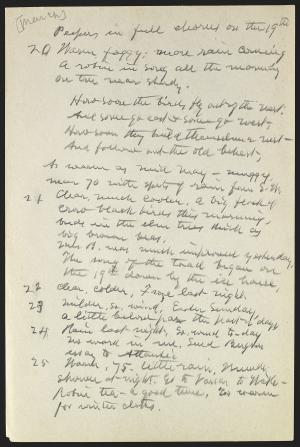 [March]
Peepers in full chorus on the 19th
20 Warm foggy; more rain coming
A robin in song all the morning
on tree near study.
How soon the birds fly out of the nest.
And some go east & some go west,
How soon they build themselves a nest -
And follow out the old behest,
As warm as mid May - muggy,
near 70 with spots of rain from S.W.
21 Clear, much cooler. A big flock of
crow black birds this morning,
buds in the elm trees thick as
big brown bees.
was much improved yesterday,
The song of the toad began on
the 19th down by the ice house,
22 clear, colder, froze last night.
23 Milder, S. wind, Easter Sunday
a little below last days
24 Rain last night, S. wind to-day
No word in me, Send
essay to Atlantic
25 Warm, 75. little rain, thunder
shower at night. Go to Vassar to
Robin tea - a good time, too warm
for winter clothes.